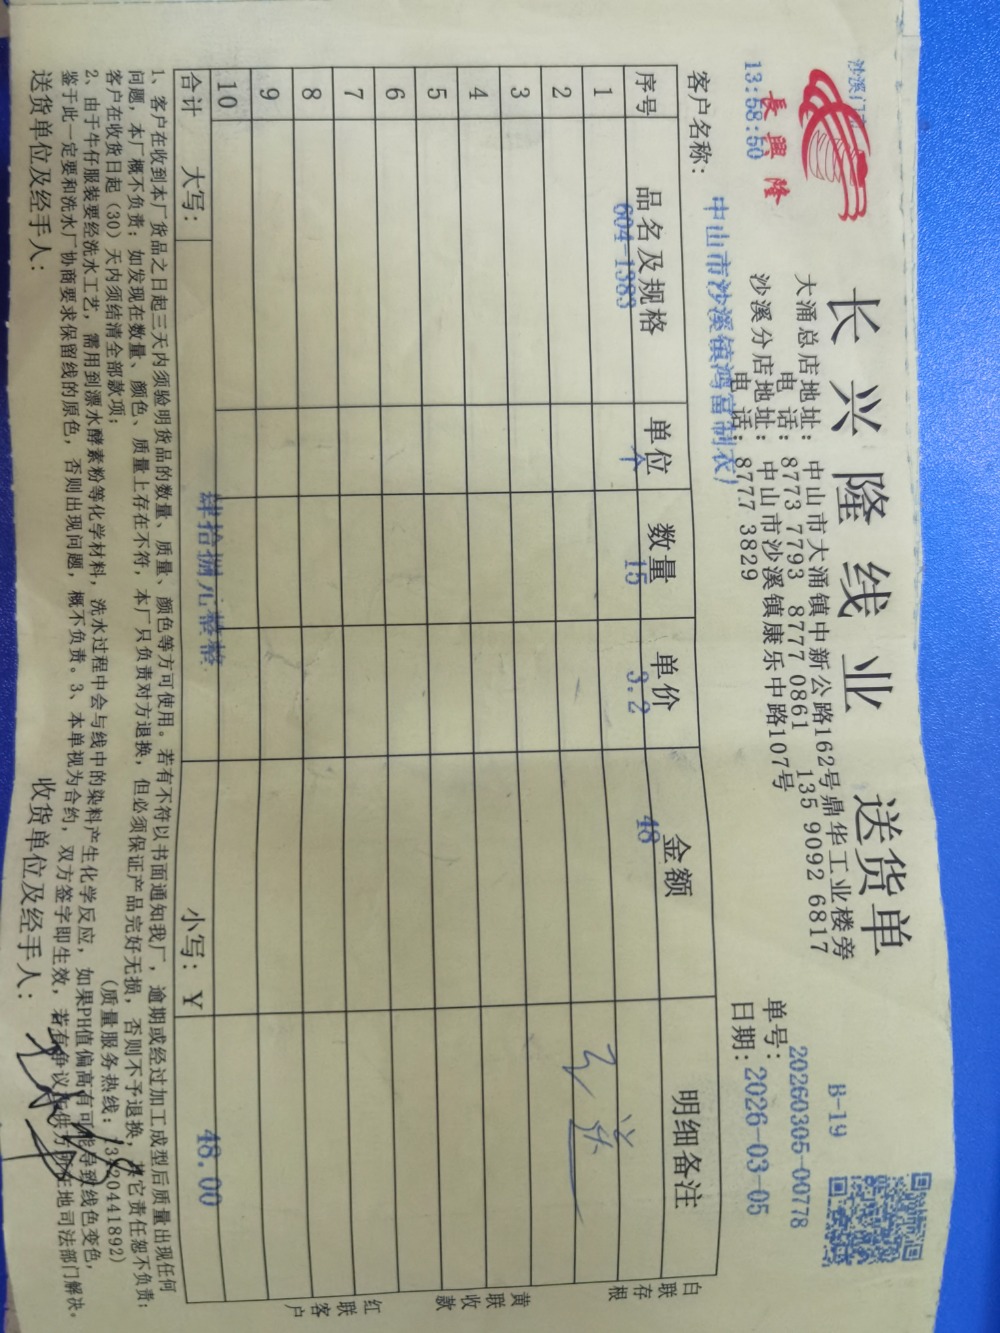 長興隆
13:58:50
长兴隆线业 送货单
大涌总店地址: 中山市大涌镇中新公路162号鼎华工业楼旁
电 话: 8773 7793 8777 0861 135 9092 6817
沙溪分店地址: 中山市沙溪镇康乐中路107号
电 话: 8777 3829
B-19
单号: 20260305-00778
日期: 2026-03-05
客户名称: 中山市沙溪镇鸿富制衣厂
序号 品名及规格 单位 数量 单价 金额 明细备注
1 604-1383 个 15 3.2 48
2
3
4
5
6
7
8
9
10
合计 大写: 肆拾捌元整整 小写: ¥ 48.00
白联存根
黄联收款
红联客户
1、客户在收到本厂货品之日起三天内须验明货品的数量、质量、颜色等方可使用。若有不符以书面通知我厂,逾期或经过加工成型后质量出现任何
问题,本厂概不负责;如发现在数量、颜色、质量上存在不符,本厂只负责对方退换,但必须保证产品完好无损,否则不予退换,其它责任恕不负责;
客户在收货日起(30)天内须结清全部款项; (质量服务热线:
2、由于牛仔服装要经洗水工艺,需用到漂水酵素粉等化学材料,洗水过程中会与线中的染料产生化学反应,如果PH值偏高有可能导致线色变色,
鉴于此一定要和洗水厂协商要求保留线的原色,否则出现问题,概不负责。3、本单视为合约,双方签字即生效,若有争议由供方所在地司法部门解决。
送货单位及经手人: 收货单位及经手人: